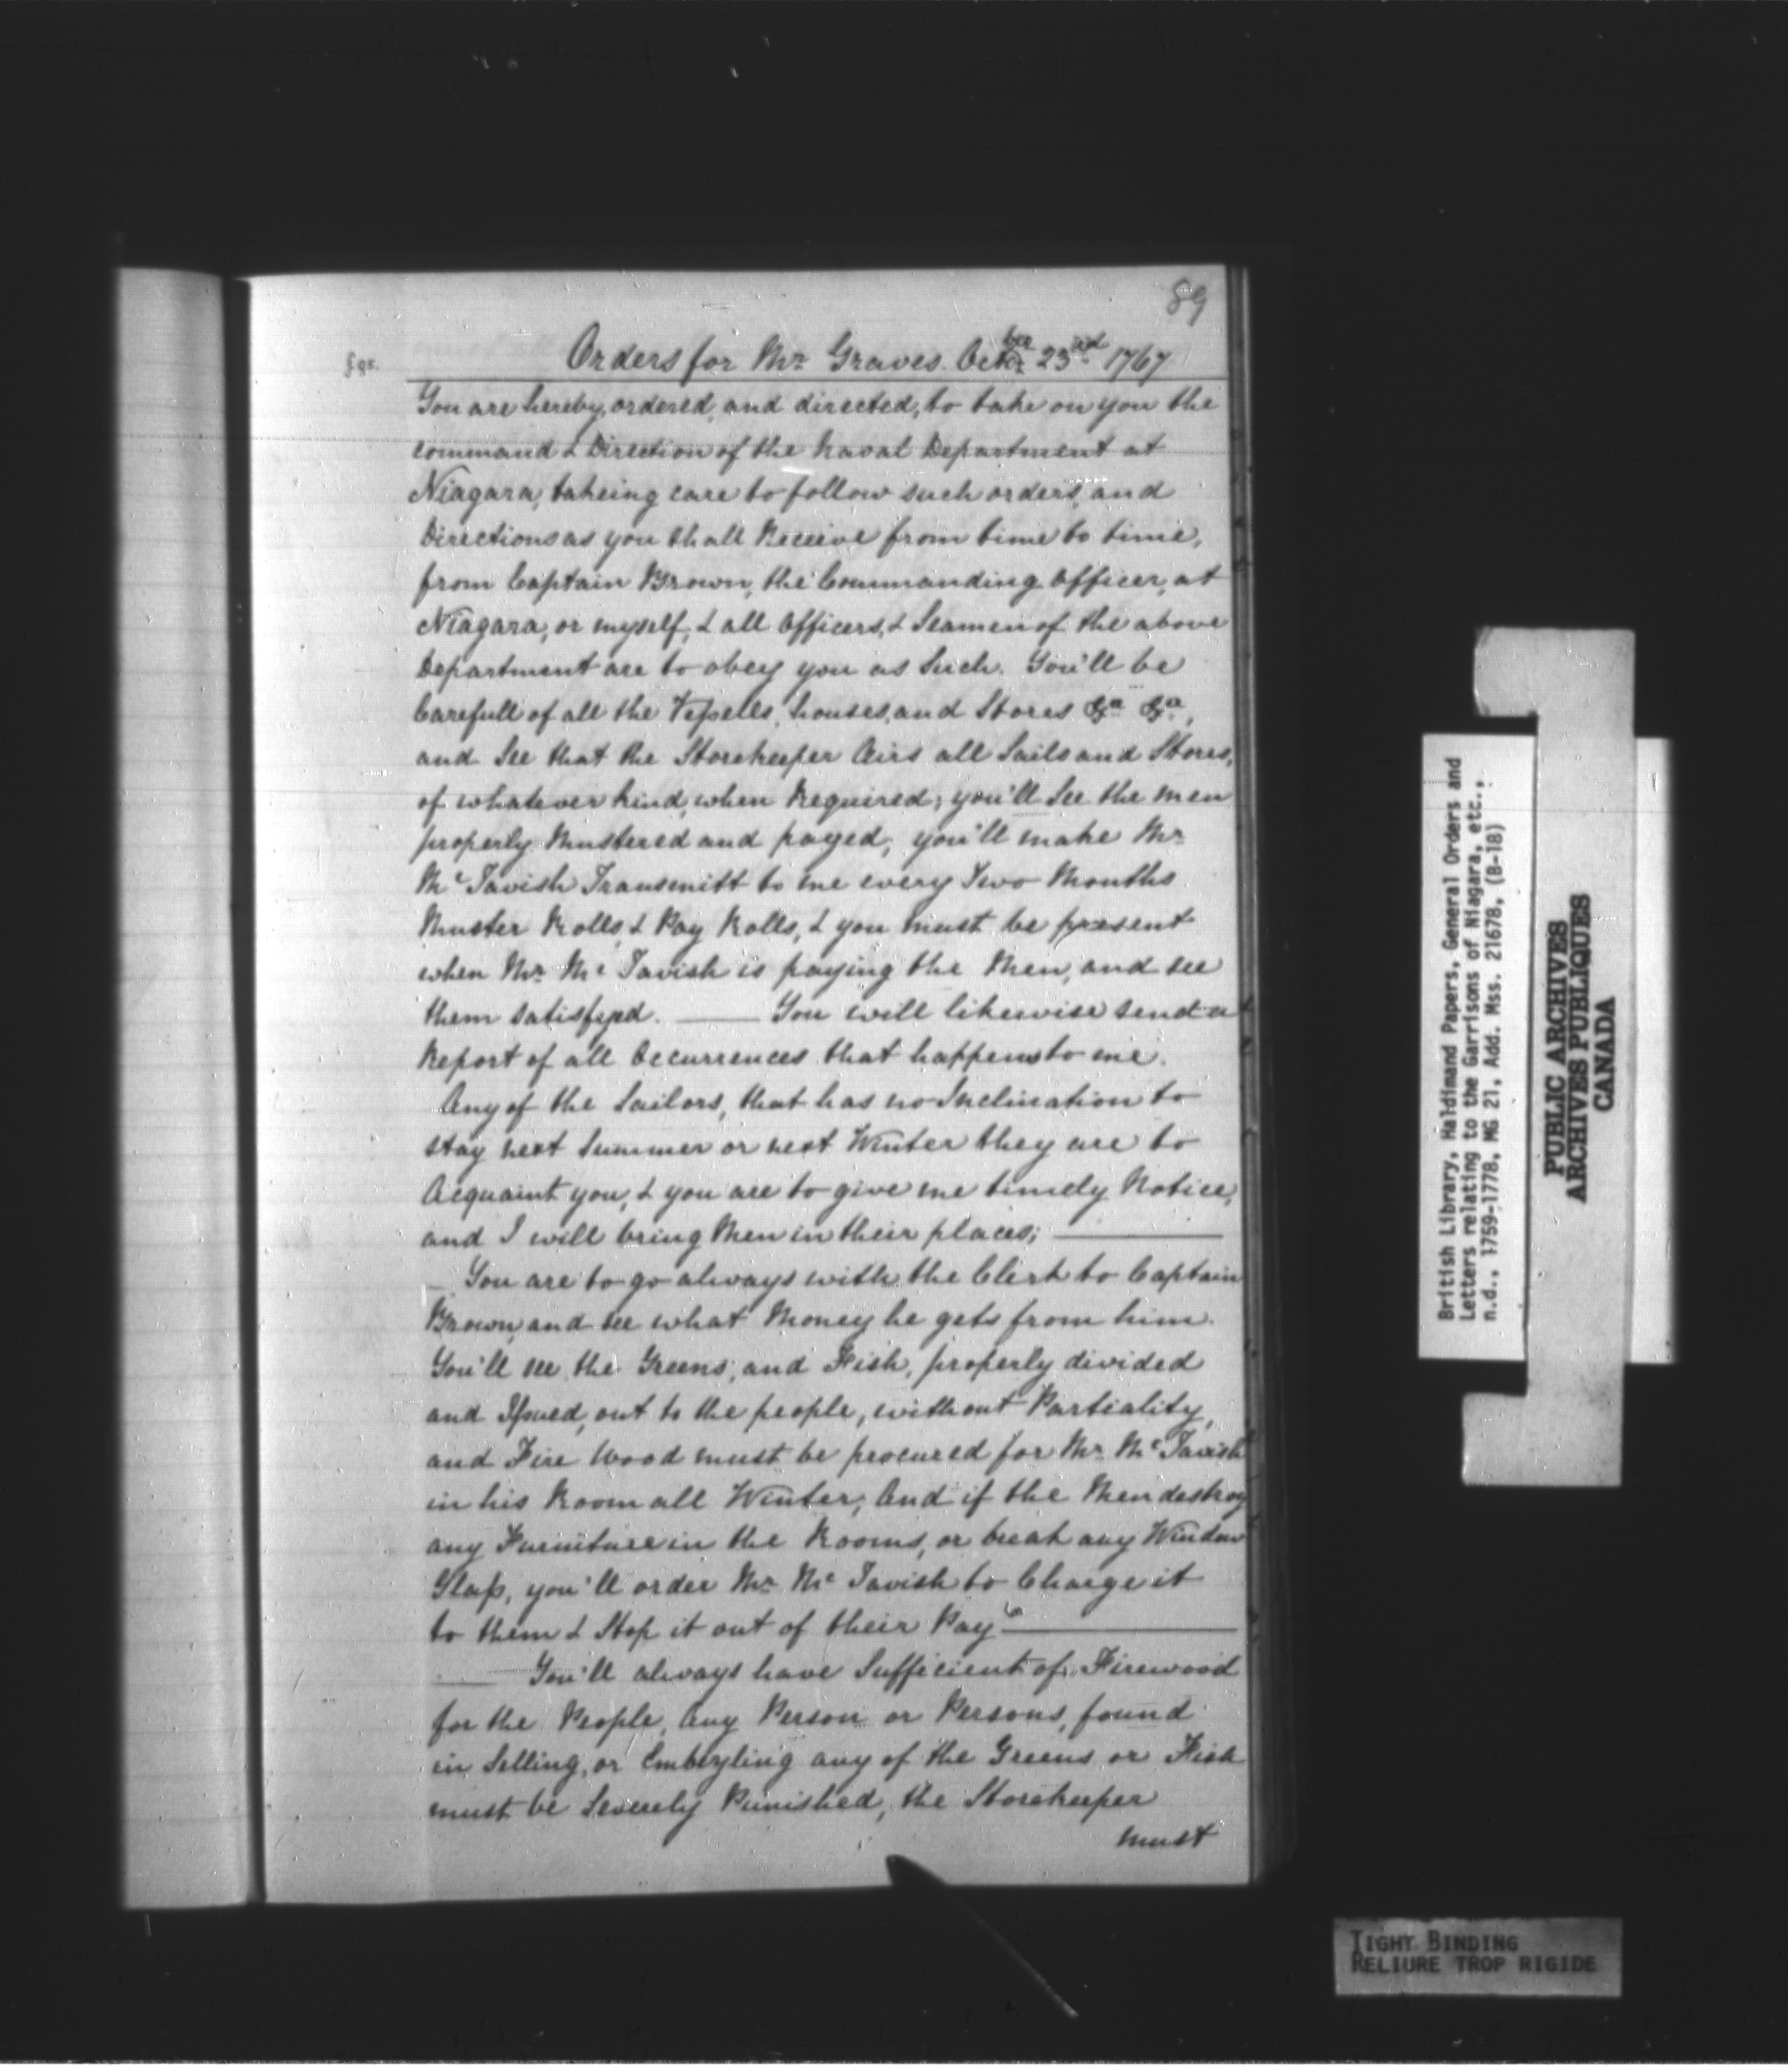 89
Orders for Mr Graves. Octber 23rd 1767
You are hereby, ordered, and directed, to take on you the
command & Direction of the Naval Department at
Niagara, takeing care to follow such orders, and
Directions as you shall Receive from time to time,
from Captain Brown, the Commanding Officer, at
Niagara, or myself, & all Officers, & Seamen of the above
Department are to obey you as Such. You'll be
Carefull of all the Vessells, houses, and Stores &ca &ca,
and See that the Storekeeper Airs all Sails and Stores,
of whatever kind, when Required; you'll See the men
properly Mustered and payed; you'll make Mr
Mc Tavish Transmitt to me every Two Months
Muster Rolls, & Pay Rolls, & you must be present
when Mr Mc Tavish is paying the Men, and see
them satisfyed. ——— You will likewise send a
Report of all Occurrences that happens to me.
Any of the Sailors, that has no Inclination to
stay next Summer or next Winter they are to
Acquaint you, & you are to give me timely Notice,
and I will bring Men in their places; ———
— You are to go always with the Clerk to Captain
Brown, and see what Money he gets from him.
You'll see the Greens, and Fish, properly divided
and Issued, out to the people, without Partiality,
and Fire Wood must be procured for Mr Mc Tavish
in his Room all Winter; And if the Men destroy
any Furniture in the Rooms, or break any Window
Glass, you'll order Mr Mc Tavish to Charge it
to them & Stop it out of their Pay ———
——— You'll always have Sufficient of Firewood
for the People, Any Person or Persons, found
in Selling, or Embezling any of the Greens or Fish
must be Severely Punished, the Storekeeper
must
British Library, Haldimand Papers, General Orders and
Letters relating to the Garrisons of Niagara, etc.,
n.d., 1759-1778, MG 21, Add. Mss. 21678, (B-18)
PUBLIC ARCHIVES
ARCHIVES PUBLIQUES
CANADA
TIGHT BINDING
RELIURE TROP RIGIDE